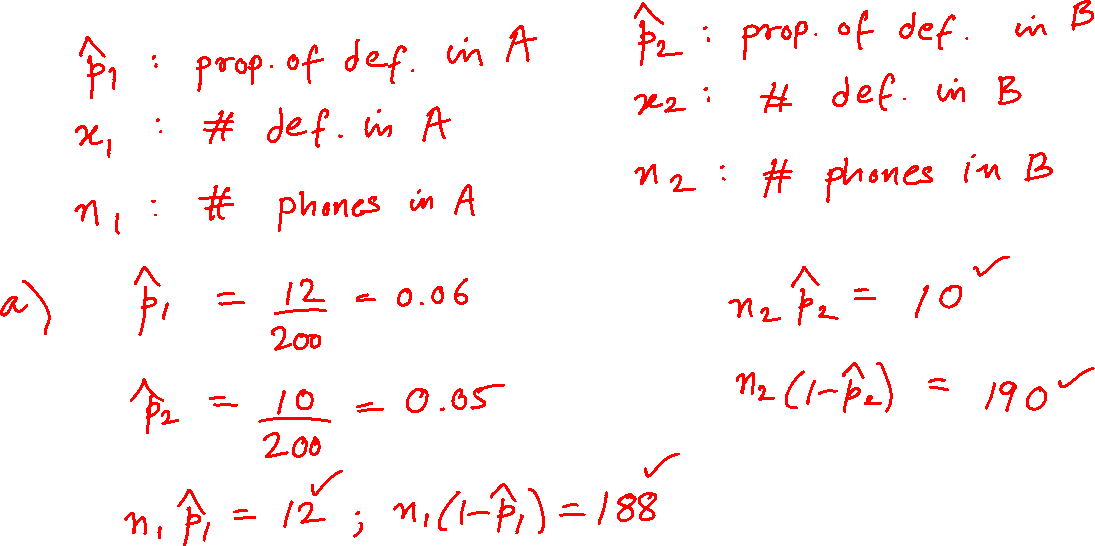 p̂₁ : prop. of def. in A
x₁ : # def. in A
n₁ : # phones in A
p̂₂ : prop. of def. in B
x₂ : # def. in B
n₂ : # phones in B
a) p̂₁ = 12/200 = 0.06
p̂₂ = 10/200 = 0.05
n₁ p̂₁ = 12 ✓ ; n₁(1-p̂₁) = 188 ✓
n₂ p̂₂ = 10 ✓
n₂(1-p̂₂) = 190 ✓